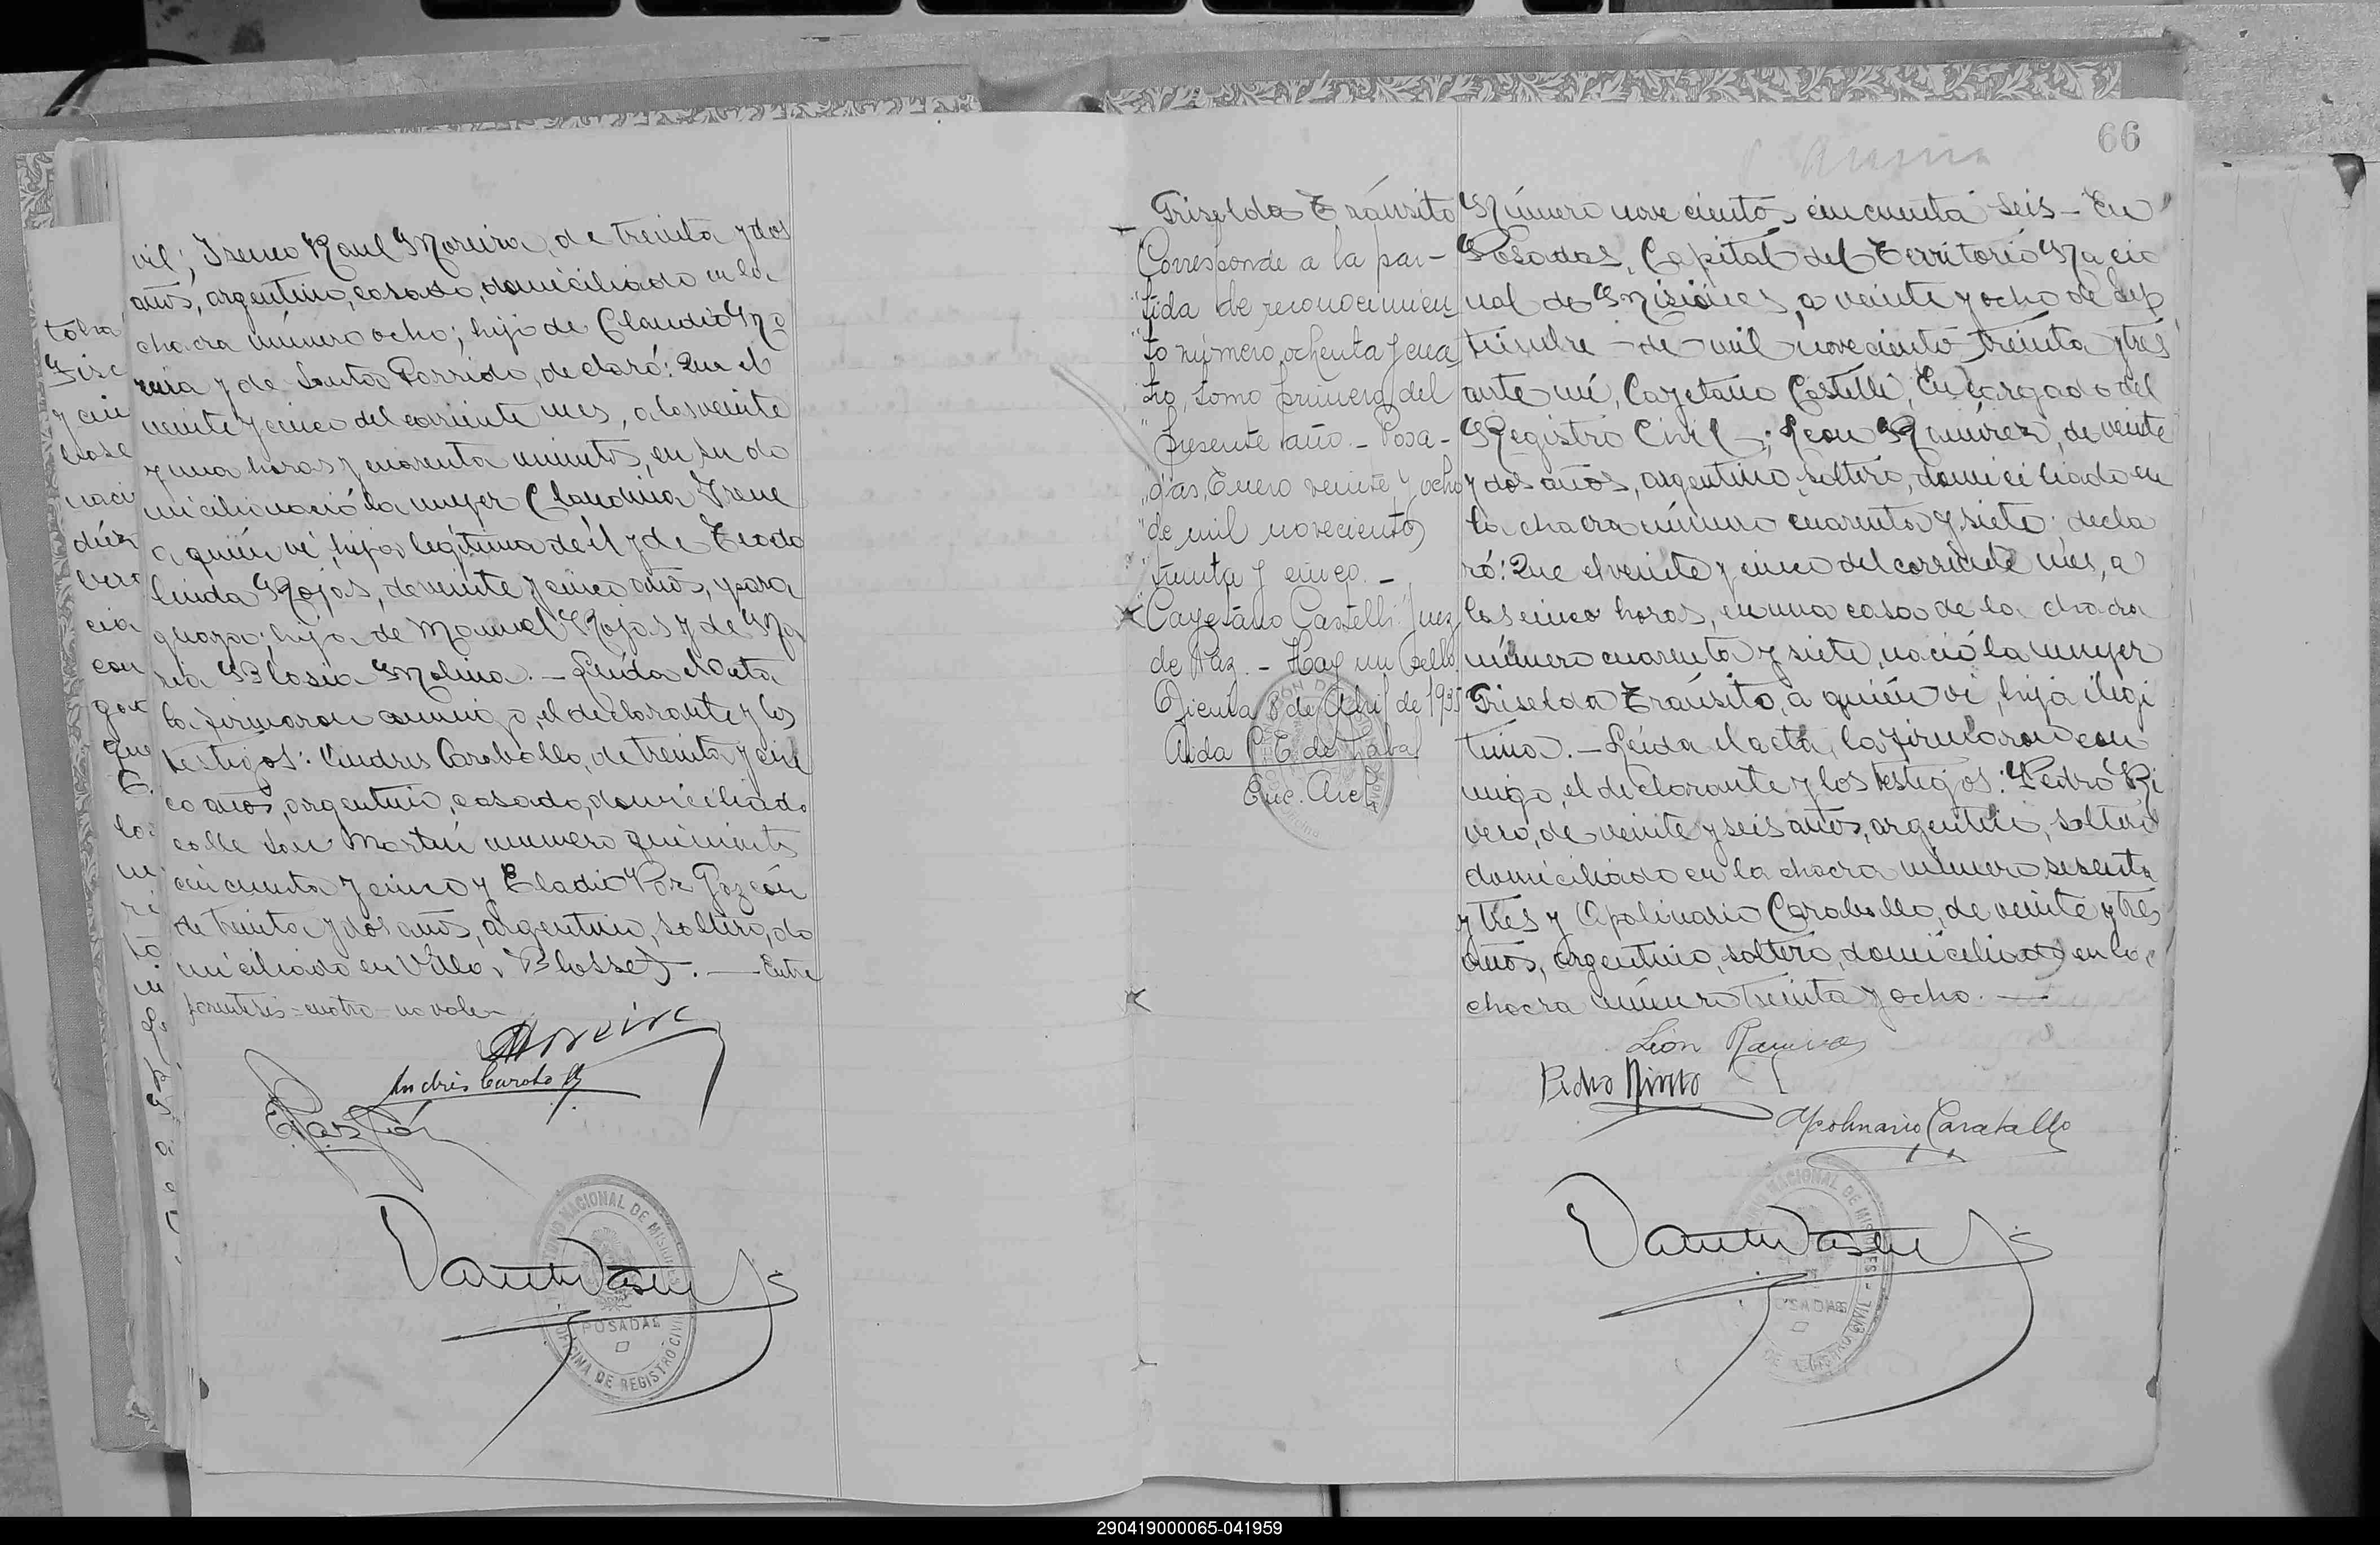 vil; Ireneo Raul Moreira, de treinta y dos
años, argentino, casado, domiciliado en la
chacra número ocho; hijo de Claudio Mo
reira y de Santos Garrido, declaró: Que el
veinte y cinco del corriente mes, a las veinte
y una horas y cuarenta minutos, en su do
micilio nació la mujer Claudina Irene
a quién vi, hija legítima de él y de Teodo
linda Rojas, de veinte y cinco años, para
guaya; hija de Manuel Rojas y de Ma
ria Blasia Molina. — Leída el acta
la firmaron conmigo, el declarante y los
testigos: Andres Caraballo, de treinta y cin
co años, argentino, casado, domiciliado
calle San Martín número quinientos
cincuenta y cinco y Eladio Paz Gazcón
de treinta y dos años, argentino, soltero, do
miciliado en Villa Blosset. — Entre
parentesis = cuatro = no vale=
Moreira
Andrés Caraballo
TERRITORIO NACIONAL DE MISIONES
POSADAS
OFICINA DE REGISTRO CIVIL
66
Griselda Tránsito
Corresponde a la par-
"tida de reconocimien
"to número ochenta y cua
"tro, tomo primero del
"presente año. - Posa-
"das, Enero veinte y ocho
"de mil novecientos
"treinta y cinco. -
"Cayetano Castelli" Juez
de Paz. - Hay un sello.
8 de Abril de 1935
Aida
Enc. Arch.
Número novecientos cincuenta seis - En
Posadas, Capital del Territorio Nacio
nal de Misiones, a veinte y ocho de Sep
tiembre - de mil novecientos treinta y tres
ante mí, Cayetano Castelli, Encargado del
Registro Civil; Leon Ramírez, de veinte
y dos años, argentino, soltero, domiciliado en
la chacra número cuarenta y siete; decla
ró: Que el veinte y cinco del corriente mes, a
las cinco horas, en una casa de la chacra
número cuarenta y siete, nació la mujer
Griselda Tránsito, a quién vi, hija ilegi
tima. - Leída el acta, la firmaron con
migo, el declarante y los testigos: Pedro Ri
vero, de veinte y seis años, argentino, soltero
domiciliado en la chacra número sesenta
y tres y Apolinario Caraballo, de veinte y tres
años, argentino, soltero, domiciliado en la
chacra número treinta y ocho. —
León Ramirez
Pedro
Apolinario Caraballo
NACIONAL DE MISIONES
POSADAS
290419000065-041959